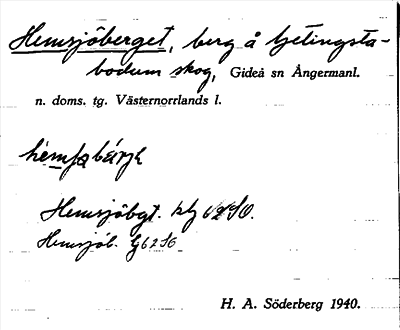 Hemsjöberget, berg å tjetingsta-
bodum skog, Gideå sn Ångermanl.
n. doms. tg. Västernorrlands l.
Hemsjöbgt. blg 62 SO.
Hemsjöb. G 62 SO
H. A. Söderberg 1940.